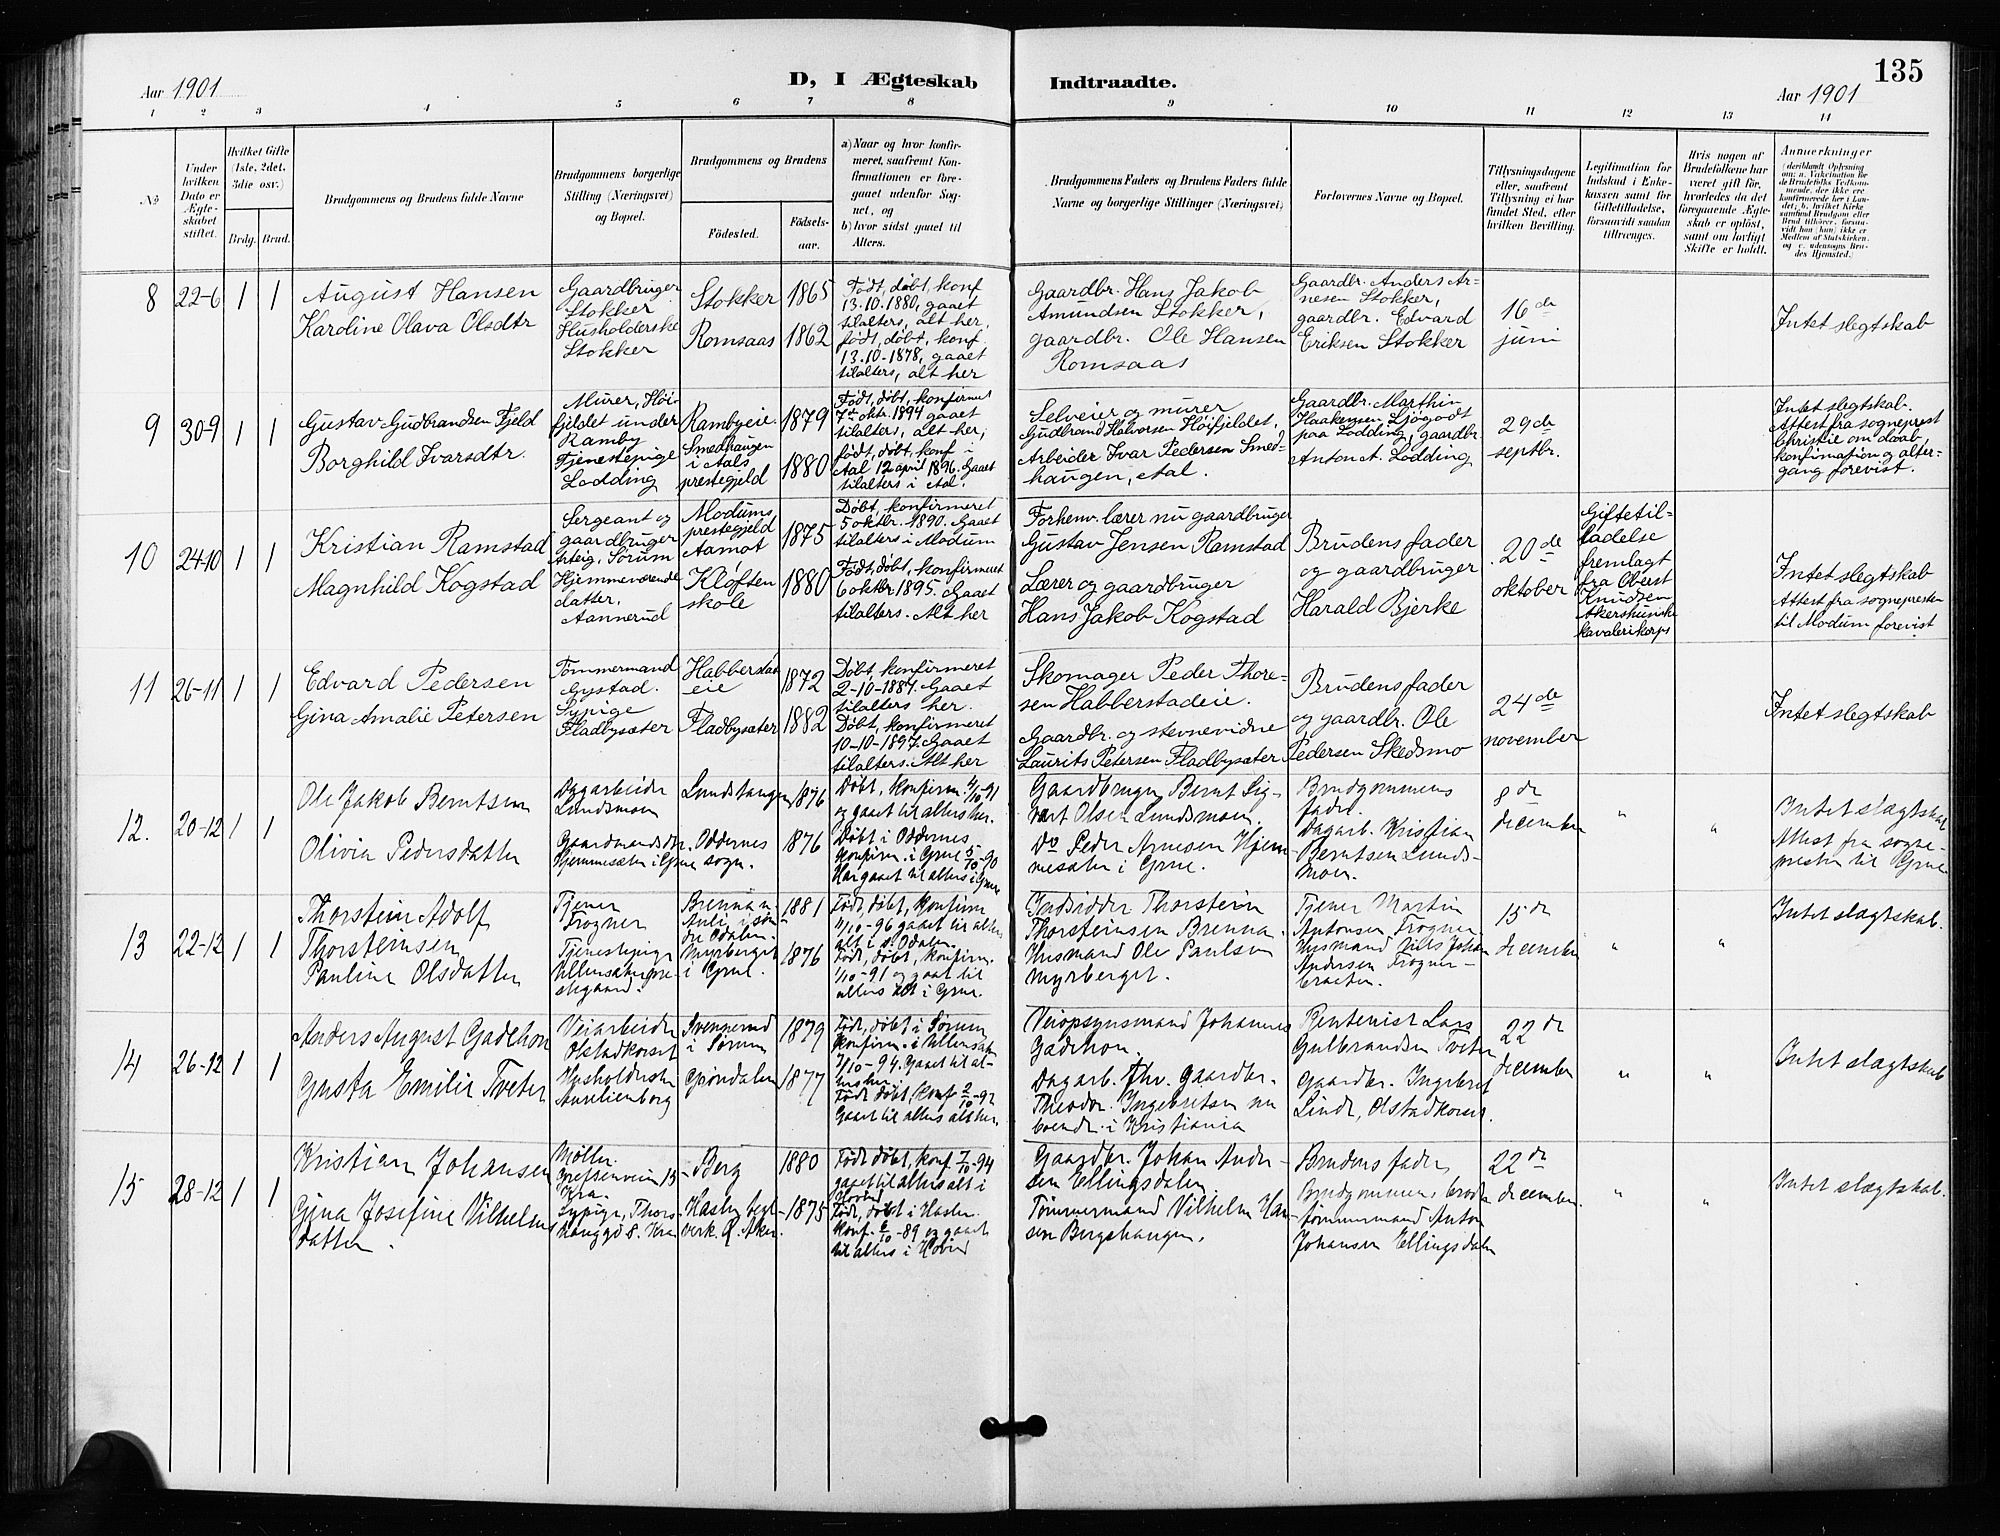 Aar 1901
D, I Ægteskab
Indtraadte.
135
Aar 1901
1 2 3 4 5 6 7 8 9 10 11 12 13 14
№
Under hvilken Dato er Ægteskabet stiftet.
Hvilket Gifte (1ste, 2det, 3die osv.)
Brdg. Brud.
Brudgommens og Brudens fulde Navne
Brudgommens borgerlige Stilling (Næringsvei) og Bopæl.
Brudgommens og Brudens
Fødested.
Fødsels-aar.
a) Naar og hvor konfir-
meret, saafremt Kon-
firmationen er fore-
gaaet udenfor Sog-
net, og
b) hvor sidst gaaet til
Alters.
Brudgommens Faders og Brudens Faders fulde
Navne og borgerlige Stillinger (Næringsvei)
Forlovernes Navne og Bopæl.
Tillysningsdagene
eller, saafremt
Tillysning ei har
fundet Sted, efter
hvilken Bevilling.
Legitimation for
Indskud i Enke-
kassen samt for
Giftetilladelse,
forsaavidt saadan
tiltrænges.
Hvis nogen af
Brudefolkene har
været gift før,
hvorledes da det
foregaaende Ægte-
skab er opløst,
samt om lovligt
Skifte er holdt.
Anmerkninger
(deriblandt Oplysning
om: a. Vakcination for
de Brudefolks Vedkom-
mende, der ikke ere
konfirmerede her i Lan-
det; b. hvilket Kirke-
samfund Brudgom eller
Brud tilhører, forsaa-
vidt han (hun) ikke er
Medlem af Statskirken,
og c. udensogns Bru-
des Hjemsted.)
8
22-6
1 1
August Hansen
Karoline Olava Olsdtr
Gaardbruger
Stokker
Husholderske
Stokker
Stokker
Romsaas
1865
1862
Født, døbt, konf
13.10.1880, gaaet
tilalters, alt her,
født, døbt, konf
13.10-1878, gaaet
tilalters, alt her
Gaardbr. Hans Jakob
Amundsen Stokker,
gaardbr. Ole Hansen
Romsaas
Gaardbr. Anders Ar-
nesen Stokker,
gaardbr. Edvard
Eriksen Stokker
16de
juni
Intet slegtskab
9
30-9
1 1
Gustav Gudbrandsen Fjeld
Borghild Ivarsdtr.
Murer, Høi-
fjeldet under
Ramby
Tjenestepige
Lodding
Rambyeie.
Smedhaugen
i Aals
prestegjeld
1879
1880
Født, døbt, konfirmet
7de oktr. 1894 gaaet
tilalters, alt her,
født, døbt, konf i
Aal 12 april 1896. Gaaet
tilalters i Aal.
Selveier og murer
Gudbrand Halvorsen Høifjeldet,
Arbeider Ivar Pedersen Smed-
haugen, Aal.
Gaardbr. Marthin
Haakensen Ljøgodt
paa Lodding, gaardbr.
Anton A. Lodding
29de
septbr.
Intet slegtskab.
Attest fra sogneprest
Christie om daab,
konfirmation og alter-
gang forevist.
10
24-10
1 1
Kristian Ramstad
Magnhild Kogstad
Sergeant og
gaardbruger
Arteig, Sørum
Hjemmeværende
datter,
Aannerud
Modums
prestegjeld
Aamot
Kløften
skole
1875
1880
Døbt, konfirmeret
5 oktbr. 1890. Gaaet
tilalters i Modum
Født, døbt, konfirmeret
6 oktbr 1895. Gaaet
tilalters. Alt her
Forhenv. lærer nu gaardbruger
Gustav Jensen Ramstad
Lærer og gaardbruger
Hans Jakob Kogstad
Brudens fader
og gaardbruger
Harald Bjerke
20de
oktober
Giftetil-
ladelse
fremlagt
fra Oberst
Knudsen
Akershusiske
kavalerikorps
Intet slegtskab
Attest fra sognepresten
til Modum forevist
11
26-11
1 1
Edvard Pedersen
Gina Amalie Petersen
Tømmermand
Gystad.
Sypige
Fladbysæter
Habberstad
eie
Fladbysæter
1872
1882
Døbt, konfirmeret
2-10-1887. Gaaet
tilalters her.
Døbt, konfirmeret
10-10-1897. Gaaet
tilalters. Alt her
Skomager Peder Thore-
sen Habberstadeie.
Gaardbr. og stevnevidne
Laurits Petersen Fladbysæter
Brudens fader
og gaardbr. Ole
Pedersen Skedsmo
24de
november
Intet slegtskab
12.
20-12
1 1
Ole Jakob Berntsen
Olivia Pedersdatter
Dagarbeider
Lundsmoen
Gaardmandsdtr.
Hjemmesæter i Grue
Lundstangen
Oddernes
sogn.
1876
1876
Døbt, konfirm. 4/10-91
og gaaet til alters her.
Døbt i Oddernes
Konfirm. i Grue 5/10-90
Har gaaet til alters i Grue
Gaardbruger Bernt Sig-
vart Olsen Lundsmoen.
Do Peder Arnesen Hjem-
mesæter i Grue.
Brudgommens
fader.
Dagarb. Kristian
Berntsen Lunds-
moen.
8de
december
"
"
Intet slægtskab
Attest fra sogne-
presten til Grue
13
22-12
1 1
Thorstein Adolf
Thorsteinsen
Pauline Olsdatter
Tjener
Frogner
Tjenestepige
Ullensaker pre-
stegaard.
Brenna u.
Auli i søn-
dre Odalen.
Myrberget
i Grue.
1881
1876
Født, døbt, konfirm
11/10-96 gaaet til alters
alt i s. Odalen.
Født, døbt, konfirm.
1/10-91 og gaaet til
alters alt i Grue.
Indsidder Thorstein
Thorsteinsen Brenna.
Husmand Ole Paulsen
Myrberget.
Tjener Martin
Antonsen Frogner
Husmand Nils Johan
Andersen Frogner-
braaten.
15de
december
"
"
Intet slægtskab.
14
26-12
1 1
Anders August Gadehon
Gusta Emilie Tveter
Veiarbeider
Olstadkorset
Husholderske
Aurelienborg
Svennerud
i Sørum
Grøndalen
1879
1877
Født, døbt i Sørum
konfirm. i Ullensaker
7/10-94. Gaaet til al-
ters her.
Født døbt, konf 2/10-92
Gaaet til alters alt her.
Veiopsynsmand Johannes
Gadehon.
Dagarb. fhv. Gaardbr.
Theodor Ingebretsen nu
boende i Kristiania
Rentenist Lars
Gulbrandsen Tveter
Gaardbr. Ingebret
Linde, Olstadkorset.
22de
december
"
"
Intet slægtskab
15
28-12
1 1
Kristian Johansen
Gina Josefine Vilhelms
datter.
Møller.
Grefsenveien 13
Kra.
Sypige, Thors-
hauggd 8. Kra
Berg
Hasle tegl-
verk. Ø. Aker.
1880
1875
Født døbt, konf. 7/10-94
gaaet til alters alt i
Hovind
Født, døbt i Hasle.
konf. 6/10-89 og gaaet
til alters i Hovind
Gaardbr. Johan Ander-
sen Ellingsdalen
Tømmermand Vilhelm Han-
sen Bergshaugen.
Brudens fader
Brudgommens broder
tømmermand Anton
Johansen Ellingsdalen
22de
december
"
"
Intet slægtskab.